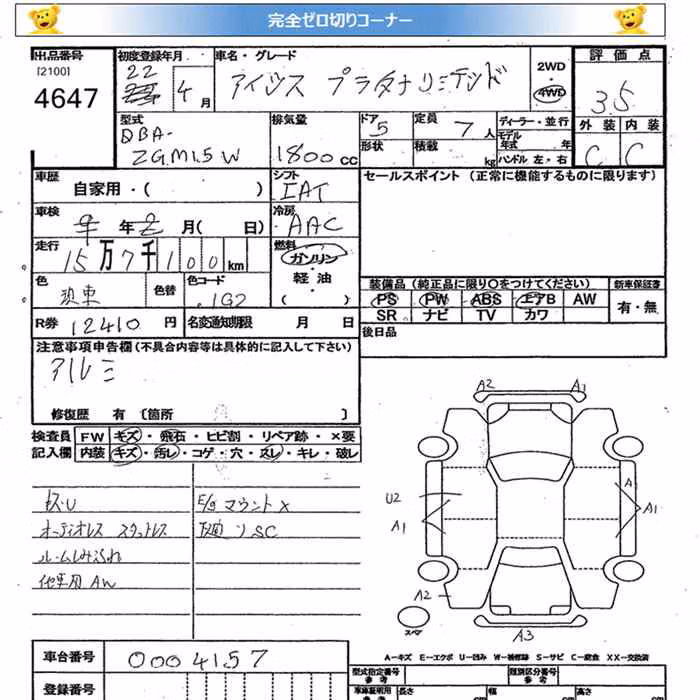 完全ゼロ切りコーナー
出品番号
[2100]
4647
初度登録年月
22
4月
車名・グレード
アイシス プラタナリミテッド
2WD
・
4WD
評価点
3.5
外装 内装
C C
型式
DBA-
ZGM15W
排気量
1800cc
ドア
5
定員
7人
形状
積載
kg
ディーラー・並行
モデル年式 年
ハンドル 左・右
車歴
自家用・( )
シフト
IAT
セールスポイント (正常に機能するものに限ります)
車検
年 月( 日)
冷房
AAC
走行
15万7千100km
燃料
ガソリン
・
軽油
( )
色
色替
色コード
1G2
装備品(純正品に限り○をつけてください)
新車保証書
PS PW ABS エアB AW
SR ナビ TV カワ
有・無
R券 12410円
名変通知期限 月 日
後日品
注意事項申告欄(不具合内容等は具体的に記入して下さい)
アルミ
修復歴 有 [箇所 ]
検査員記入欄
FW キズ・飛石・ヒビ割・リペア跡・×要
内装 キズ・汚レ・コゲ・穴・スレ・キレ・破レ
キズ・U
オーディオレス スタットレス
ルームしみ汚れ
他車用AW
E/gマウントX
下廻りSC
A2 A1
U2
A1
A
A1
A2
A3
スペア
A-キズ E-エクボ U-凹み W-補修跡 S-サビ C-腐食 XX-交換済
車台番号
0004157
登録番号
型式指定番号
参考
類別区分番号
参考
車庫証明用
長さ
幅
高さ